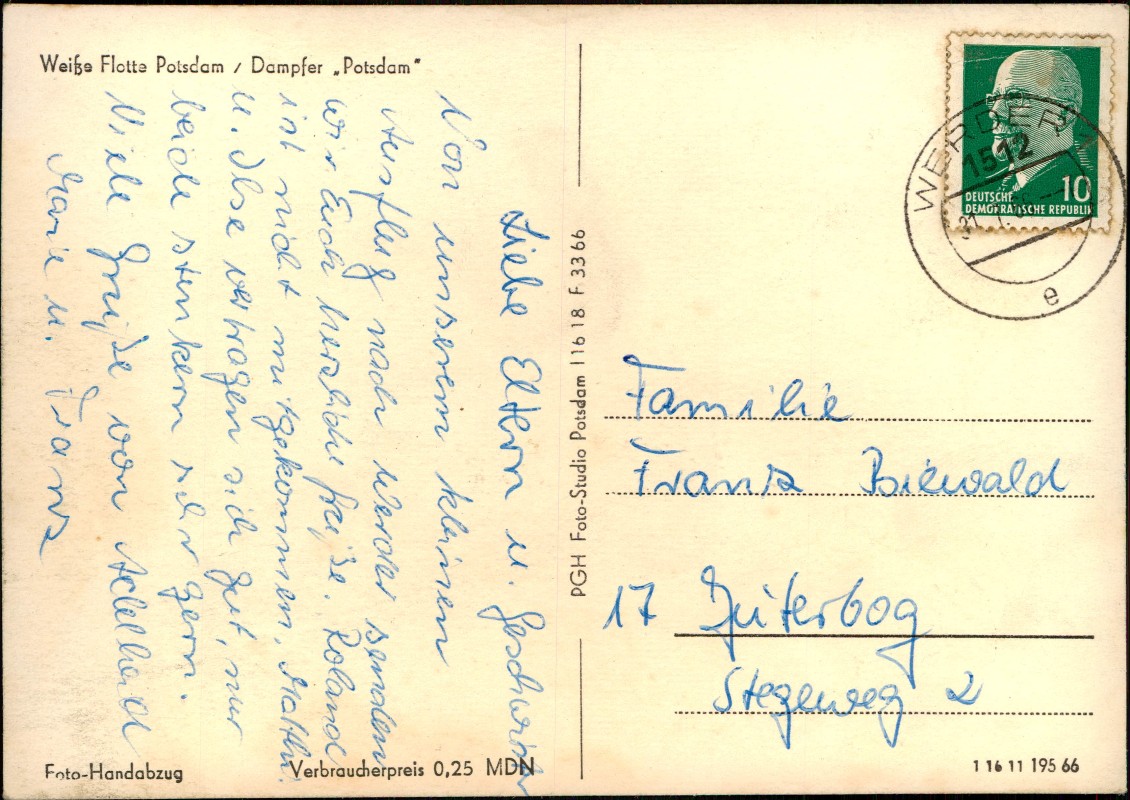 Weiße Flotte Potsdam / Dampfer „Potsdam"
Liebe Eltern u. Geschwister
Von unserem kleinen
Ausflug nach Werder senden
wir Euch herzliche Grüße. Roland
ist nicht mitgekommen.
u. Ilse vertragen sich gut, nur
beide stenkern sehr gern.
Viele Grüße von Adelheid
Marie u. Franz
Foto-Handabzug
Verbraucherpreis 0,25 MDN
PGH Foto-Studio Potsdam I 16 18 F 33 66
WERDER 1
1512
31
e
10
DEUTSCHE
DEMOKRATISCHE REPUBLIK
Familie
Franz Biewald
17 Jüterbog
Stegeweg 2
1 16 11 195 66